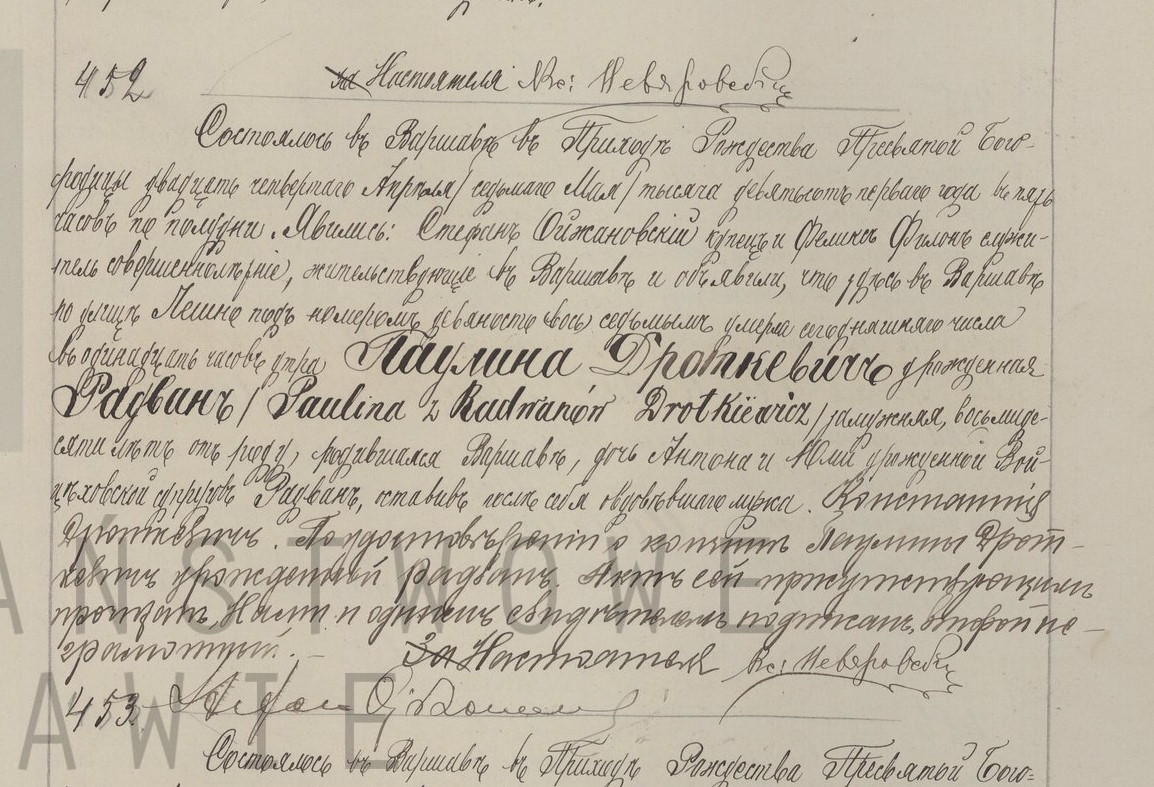 452
за Настоятеля Кс: Невяровскій
Состоялось въ Варшавѣ въ Приходѣ Рождества Пресвятой Бого-
родицы двадцать четвертаго Апрѣля / седьмаго Мая / тысяча девятьсотъ перваго года въ пять
часовъ по полудни. Явились: Стефанъ Ойжановскій купецъ и Феликсъ Филонъ служи-
тель совершеннолѣтніе, жительствующіе въ Варшавѣ и объявили, что здѣсь въ Варшавѣ
по улицѣ Лешно подъ номеромъ девяносто вось седьмымъ умерла сегоднашняго числа
въ одинадцать часовъ утра Паулина Дроткевичъ урожденная
Радванъ / Paulina z Radwanów Drotkiewicz / замужняя, восьмиде-
сяти лѣтъ отъ роду, родившаяся Варшавѣ, дочь Антона и Юлiи урожденной Вой-
цѣховской супруговъ Радванъ, оставивъ послѣ себя овдовѣвшаго мужа. Константія
Дроткевичъ. По удостовѣреніи о кончинѣ Паулины Дрот-
кевичъ урожденной Радванъ. Актъ сей присутствующимъ
прочитанъ, Нами и однимъ свидѣтелемъ подписанъ, второй не-
грамотный.
За Настоятеля Кс: Невяровскій
453.
Состоялось въ Варшавѣ въ Приходѣ Рождества Пресвятой Бого-
AŃSTWOWE
AWIE